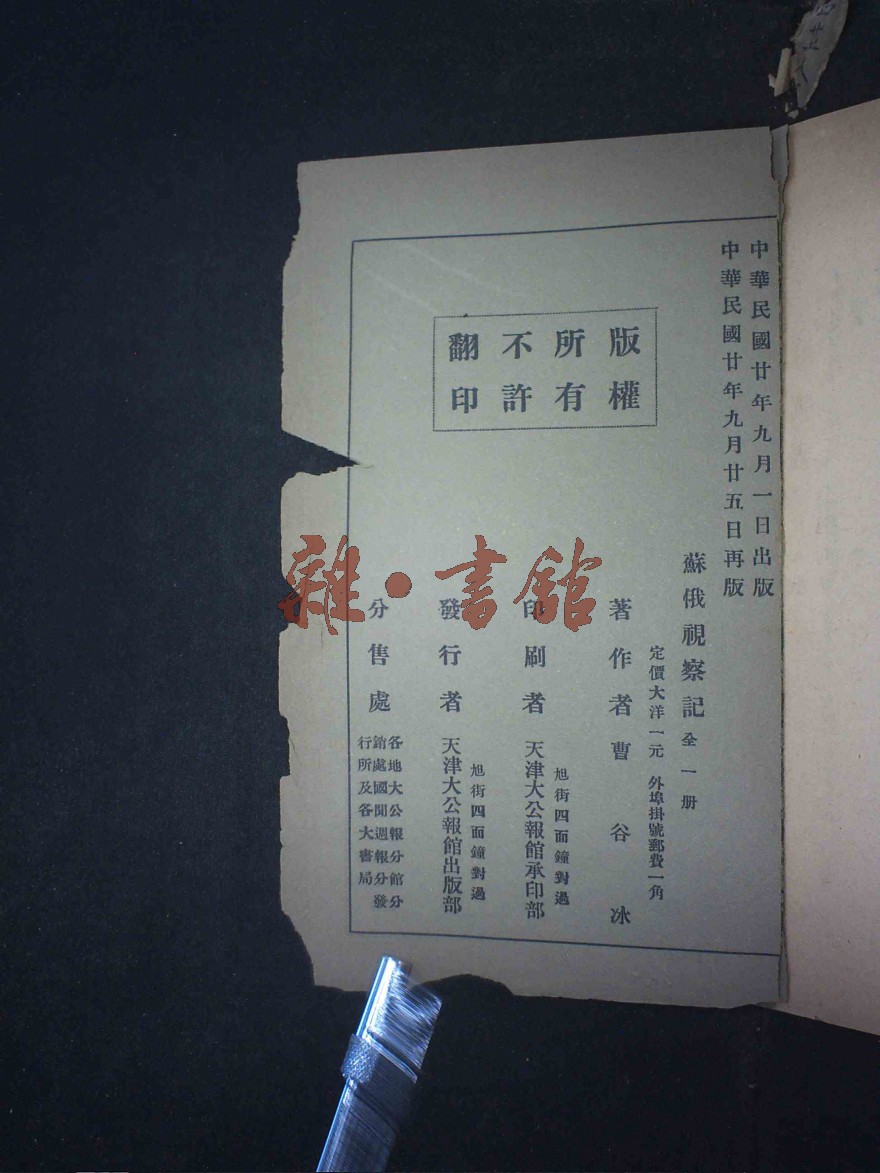 中華民國廿年九月一日出版
中華民國廿年九月廿五日再版
蘇俄視察記 全一册
定價大洋一元 外埠掛號郵費一角
版權
所有
不許
翻印
著作者 曹谷冰
旭街四面鐘對過
印刷者 天津大公報館承印部
旭街四面鐘對過
發行者 天津大公報館出版部
分售處
各地大公報分館分
銷處國聞週報分發
行所及各大書局
雜·書館